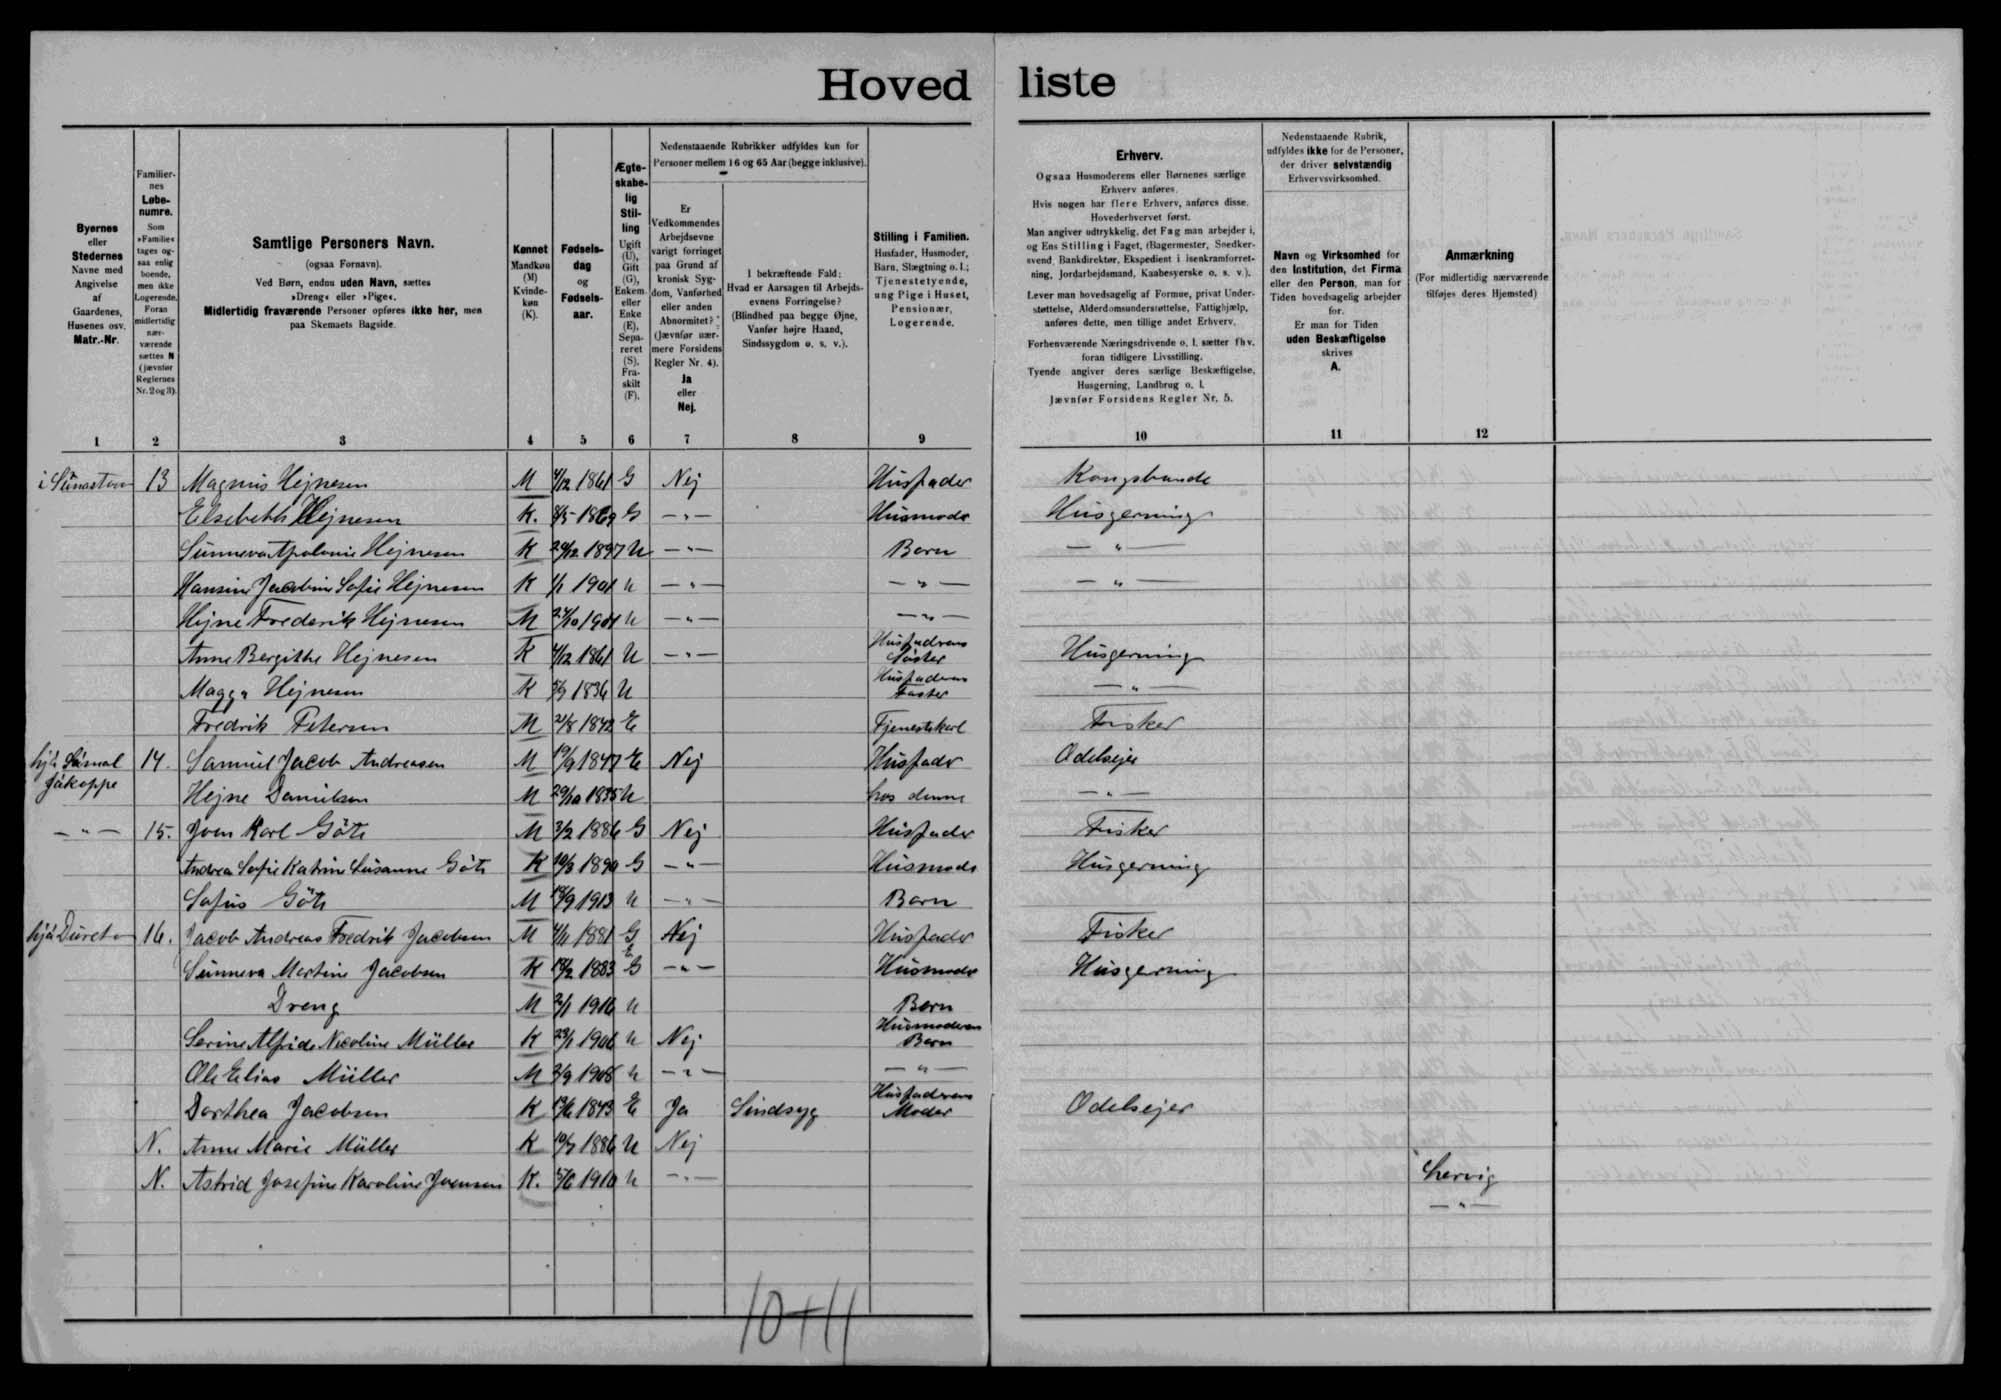 Hoved liste
Byernes
eller
Stedernes
Navne med
Angivelse
af
Gaardenes,
Husenes osv.
Matr.-Nr.
1
Familier-
nes
Løbe-
numre.
Som
»Familie«
tages og-
saa enlig
boende,
men ikke
Logerende.
Foran
midlertidig
nær-
værende
sættes N
(jævnfør
Reglernes
Nr. 2 og 3).
2
Samtlige Personers Navn.
(ogsaa Fornavn).
Ved Børn, endnu uden Navn, sættes
»Dreng« eller »Pige«.
Midlertidig fraværende Personer opføres ikke her, men
paa Skemaets Bagside.
3
Kønnet
Mandkøn
(M)
Kvinde-
køn
(K).
4
Fødsels-
dag
og
Fødsels-
aar.
5
Ægte-
skabe-
lig
Stil-
ling
Ugift
(U),
Gift
(G),
Enkem.
eller
Enke
(E),
Sepa-
reret
(S).
Fra-
skilt
(F).
6
Nedenstaaende Rubrikker udfyldes kun for
Personer mellem 16 og 65 Aar (begge inklusive).
Er
Vedkommendes
Arbejdsevne
varigt forringet
paa Grund af
kronisk Syg-
dom, Vanførhed
eller anden
Abnormitet?
(Jævnfør nær-
mere Forsidens
Regler Nr. 4).
Ja
eller
Nej.
7
I bekræftende Fald:
Hvad er Aarsagen til Arbejds-
evnens Forringelse?
(Blindhed paa begge Øjne,
Vanfør højre Haand,
Sindssygdom o. s. v.).
8
Stilling i Familien.
Husfader, Husmoder,
Barn, Slægtning o. l.;
Tjenestetyende,
ung Pige i Huset,
Pensionær,
Logerende.
9
Erhverv.
Ogsaa Husmoderens eller Børnenes særlige
Erhverv anføres.
Hvis nogen har flere Erhverv, anføres disse.
Hovederhvervet først.
Man angiver udtrykkelig, det Fag man arbejder i,
og Ens Stilling i Faget, (Bagermester, Snedker-
svend, Bankdirektør, Ekspedient i isenkramforret-
ning, Jordarbejdsmand, Kaabesyerske o. s. v.).
Lever man hovedsagelig af Formue, privat Under-
støttelse, Alderdomsunderstøttelse, Fattighjælp,
anføres dette, men tillige andet Erhverv.
Forhenværende Næringsdrivende o. l. sætter fhv.
foran tidligere Livsstilling.
Tyende angiver deres særlige Beskæftigelse,
Husgerning, Landbrug o. l.
Jævnfør Forsidens Regler Nr. 5.
10
Nedenstaaende Rubrik,
udfyldes ikke for de Personer,
der driver selvstændig
Erhvervsvirksomhed.
Navn og Virksomhed for
den Institution, det Firma
eller den Person, man for
Tiden hovedsagelig arbejder
for.
Er man for Tiden
uden Beskæftigelse
skrives
A.
11
Anmærkning
(For midlertidig nærværende
tilføjes deres Hjemsted)
12
13 Magnus Hejnesen M 4/12 1861 G Nej Husfader Kongsbunde
Elsebeth Hejnesen K. 1869 G -"- Husmodr Husgerning
Sunneva Apolonie Hejnesen K 24/12 1897 U -"- Barn -"-
Hansine Jacobine Sofie Hejnesen K 1/1 1901 U -"- -"- -"-
Hejne Frederik Hejnesen M 1901 U -"- -"-
Anne Bergithe Hejnesen K 4/12 1861 U -"- Husfadrens Söster Husgerning
Magga Hejnesen K 1836 U Husfaderens Faster -"-
Fredrik Petersen M 21/8 1842 E Tjenestekarl Fisker
hjá Sámal Jákoppe 14. Samuel Jacob Andreasen M 19/9 1847 E Nej Husfadr Odelsejer
Hejne Danielsen M 29/10 1835 U hos denne -"-
-"- 15. Joen Karl Göte M 3/2 1886 G Nej Husfader Fisker
Andrea Sofie Katrine Susanne Göte K 1890 G -"- Husmodr Husgerning
Sofus Göte M 1913 U -"- Barn
16. Jacob Andreas Fredrik Jacobsen M 4/11 1881 G Nej Husfadr Fisker
Sunneva Martine Jacobsen K 18/2 1883 G -"- Husmodr Husgerning
Dreng M 2/1 1916 U Barn
Serine Alfride Nicoline Müller K 1906 U Nej Husmoderens Barn
Ole Elias Müller M 3/9 1908 U -"- -"-
Dorthea Jacobsen K 1843 E Ja Sindsyg Husfadrens Moder Odelsejer
N. Anne Marie Müller K 1886 U Nej
N. Astrid Josefine Karoline Joensen K. 5/6 1910 U -"- Lervig
-"-
10+11